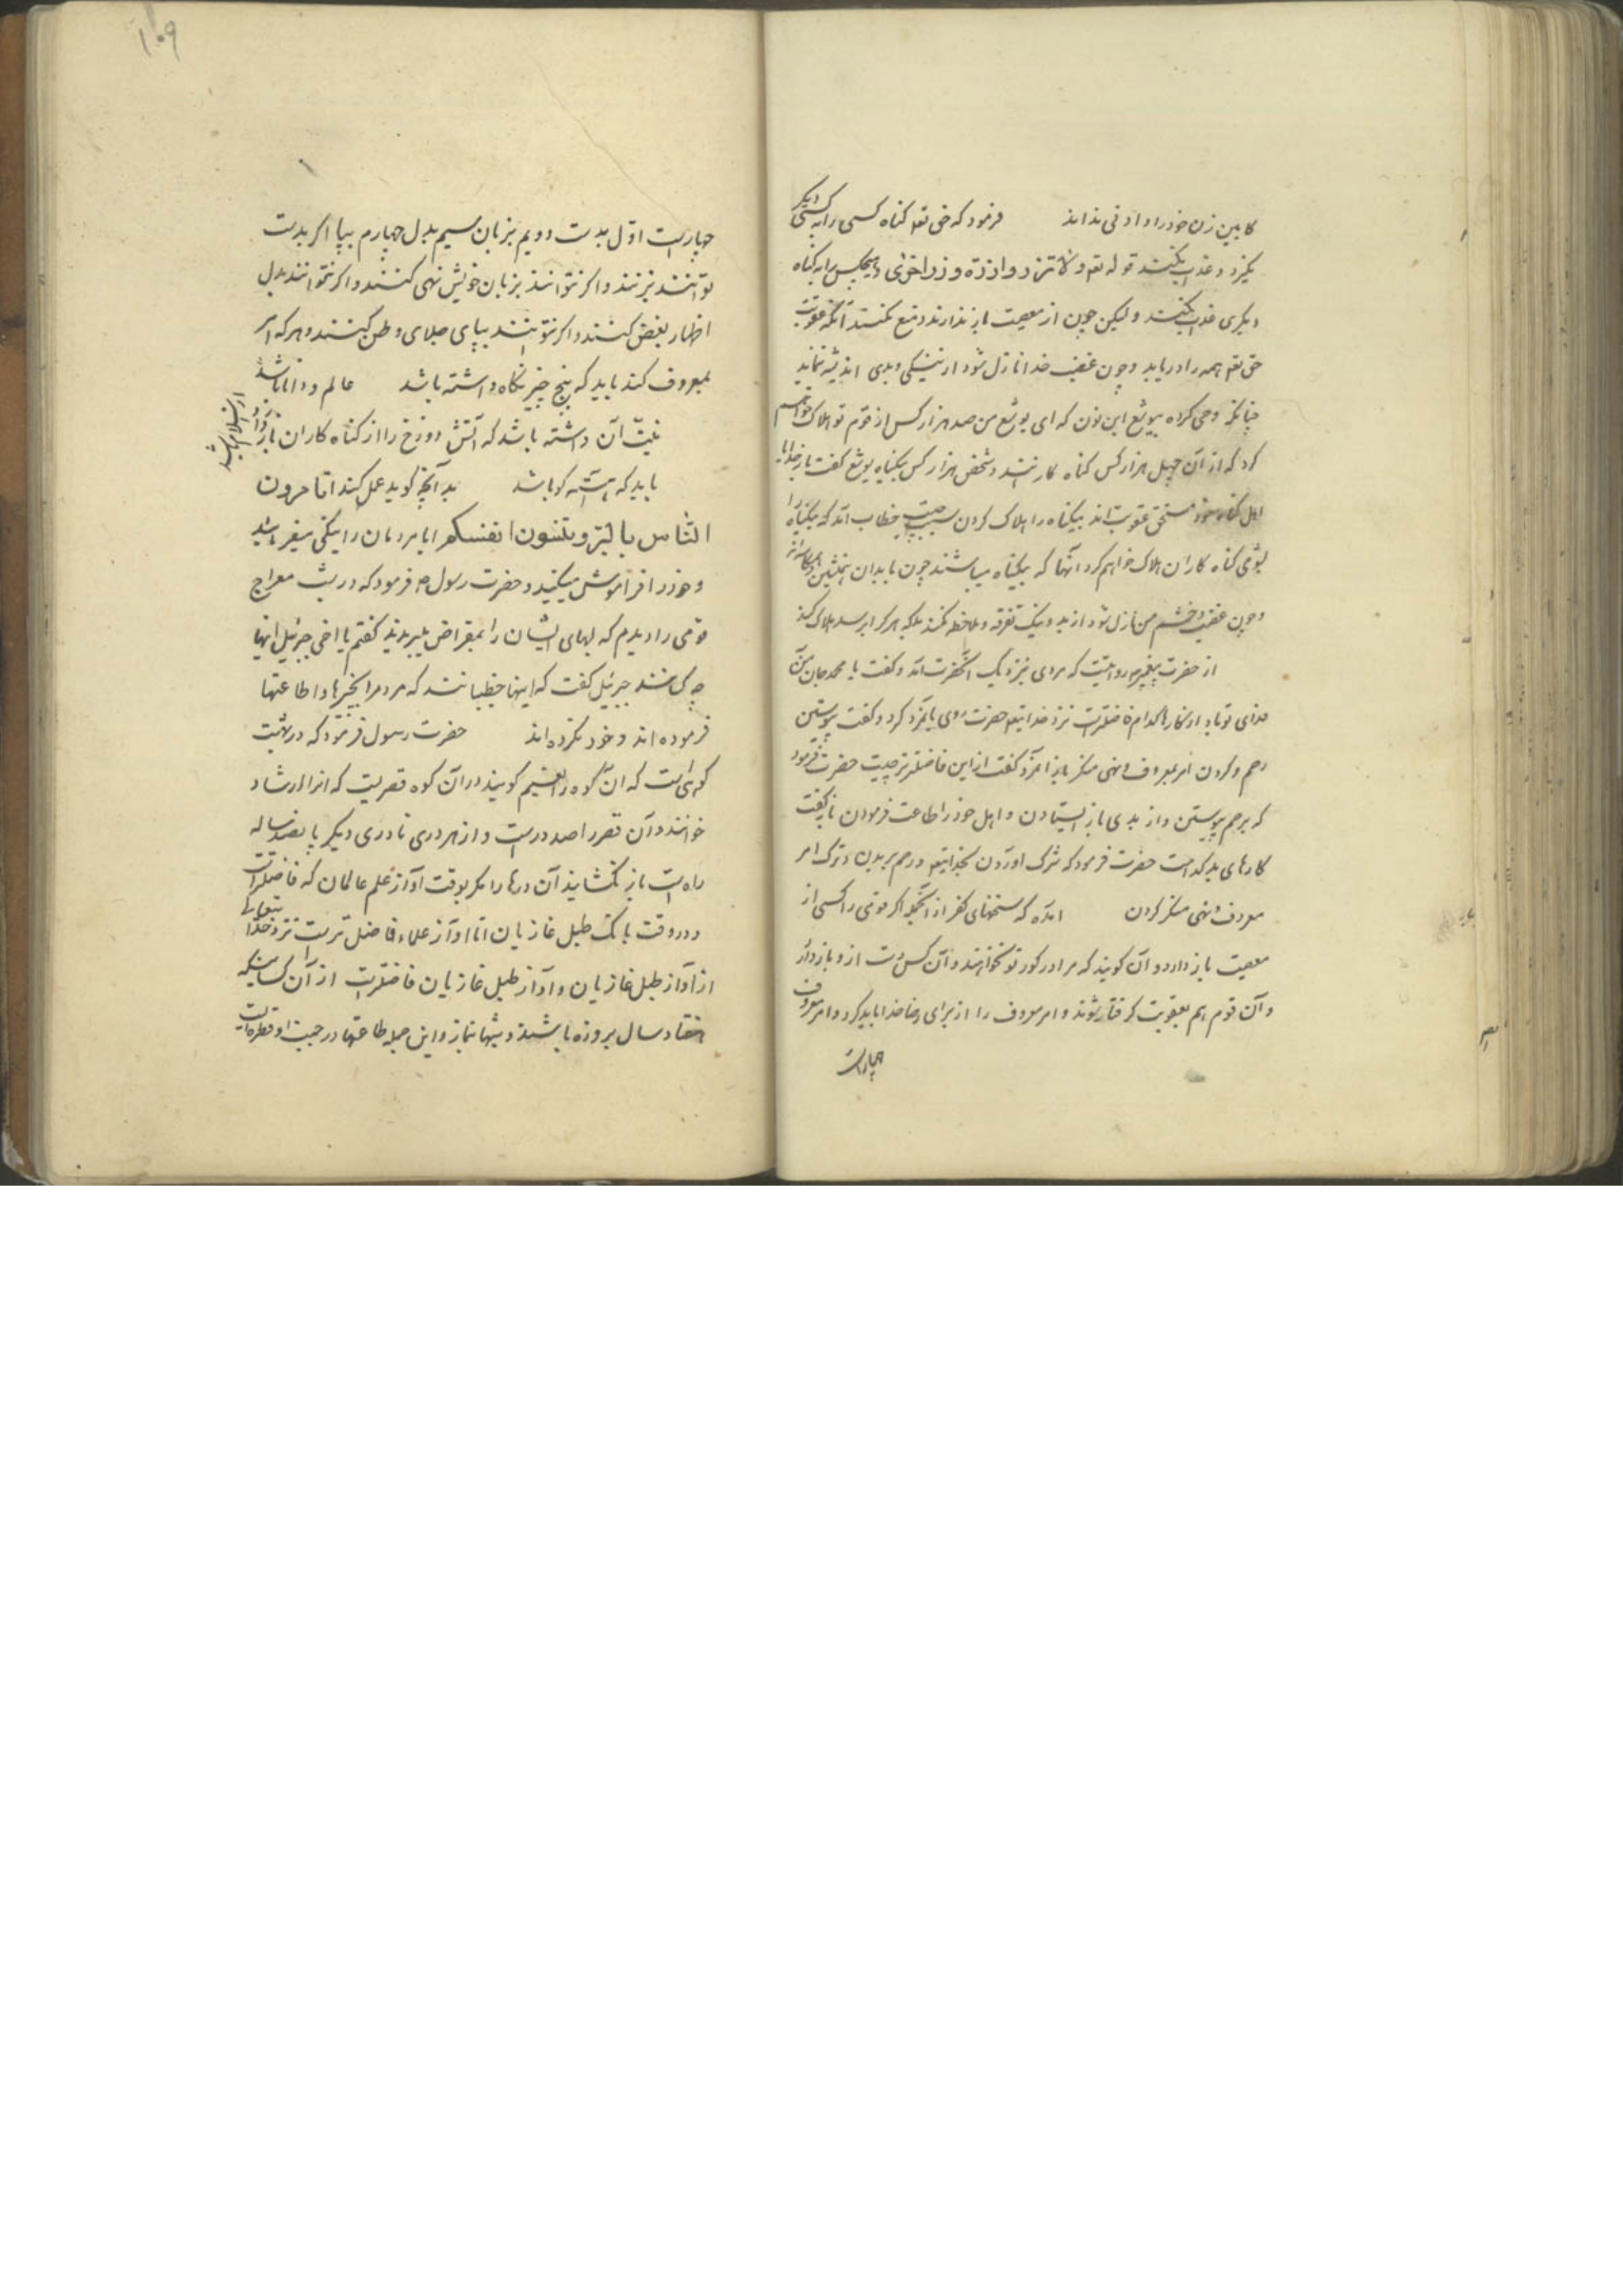 کابین زن خود را دادنی نداند فرمود که حق تعه کناه کسی را به کسی دیکر
نکیرد و عذاب نکند قوله تعه ولا تزر وازرة وزر اخری و هیچکس را به کناه
دیکری عذاب نکنند ولیکن چون از معصیت باز ندارند و منع نکنند آنکه عقوبت
حق تعه همه را دریابد و چون غضب خدا نازل شود از نیکی و بدی اندیشه نماید
چنانکه وحی کرده بیوشع ابن نون که ای یوشع من صد هزار کس از قوم تو هلاک خواهم
کرد که از آن چهل هزار کس کناه کارنند و شصت هزار کس بیکناه یوشع کفت بار خدایا
اهل کناه خود مستحق عقوبت اند بیکناه را هلاک کردن سبب چیست خطاب آمد که بیکناه را
بشومی کناه کاران هلاک خواهم کرد آنها که بیکناه میباشند چون با بدان همنشین و همکاسه اند
و چون غضب و خشم من نازل شود از بد و نیک تفرقه و ملاحظه نکند بلکه هر کرا برسد هلاک کند
از حضرت پیغمبر روایتست که مردی بنزدیک آنحضرت آمد و کفت یا محمد جان من
فدای تو باد از کارها کدام فاضلتر است نزد خدایتعه حضرت روی بانمرد کرد و کفت پیوستن
رحم و کردن امر بمعروف و نهی منکر باز آنمرد کفت از این فاضلتر چیست حضرت فرمود
که برحم پیوستن و از بدی باز ایستادن و اهل خود را طاعت فرمودن باز کفت
کارهای بد کدامست حضرت فرمود که شرک آوردن بخدایتعه و رحم بریدن و ترک امر
معروف و نهی منکر کردن آمده که سخنهای کفر از آنجمله اکر قومی را کسی از
معصیت باز دارد و آن کویند که مرا در کور تو نخواهند و آن کس دست از و باز دارد
و آن قوم هم بعقوبت کرفتار شوند و امر معروف را از برای رضا خدا باید کرد و امر معروف
چهار است
۱۰۹
چهار است اوّل بدست دویم بزبان سیم بدل چهارم بپا اکر بدست
توانند بزنند و اکر نتوانند بزبان خویش نهی کنند و اکر نتوانند بدل
اظهار بغض کنند و اکر نتوانند بپای جلای وطن کنند و هر که امر
بمعروف کند باید که پنج چیز نکاه داشته باشد عالم و دانا باشد
نیّت آن داشته باشد که آتش دوزخ را از کناه کاران باز دارد
باید که آهسته کو باشد بد آنچه کوید عمل کند اتامرون
النّاس بالبرّ وتنسون انفسکم ایا مردمان را بنیکی میفرمایید
و خود را فراموش میکنید و حضرت رسول ص فرمود که در شب معراج
قومی را دیدم که لبهای ایشان را بمقراض میبریدند کفتم یا اخی جبرئیل اینها
چه کسانند جبرئیل کفت که اینها خطیبانند که مردم را بخیرها و اطاعتها
فرموده اند و خود نکرده اند حضرت رسول فرمود که در بهشت
کوهی است که آن کوه را نسیم کویند در آن کوه قصریست که انرا الرشاد
خوانند و آن قصر را صد در است و از هر دری تا دری دیکر پانصد ساله
راه است باز نکشایند آن درها را مکر بوقت آواز علم عالمان که فاضلتر است
و در وقت بانک طبل غازیان اما آواز علماء فاضل تر است نزد خدا یتعالی
از آواز طبل غازیان و آواز طبل غازیان فاضلتر است از آن کسانیکه
هفتاد سال بروزه باشند و شبها بنماز و این جمله طاعتها در جنب او قطره است